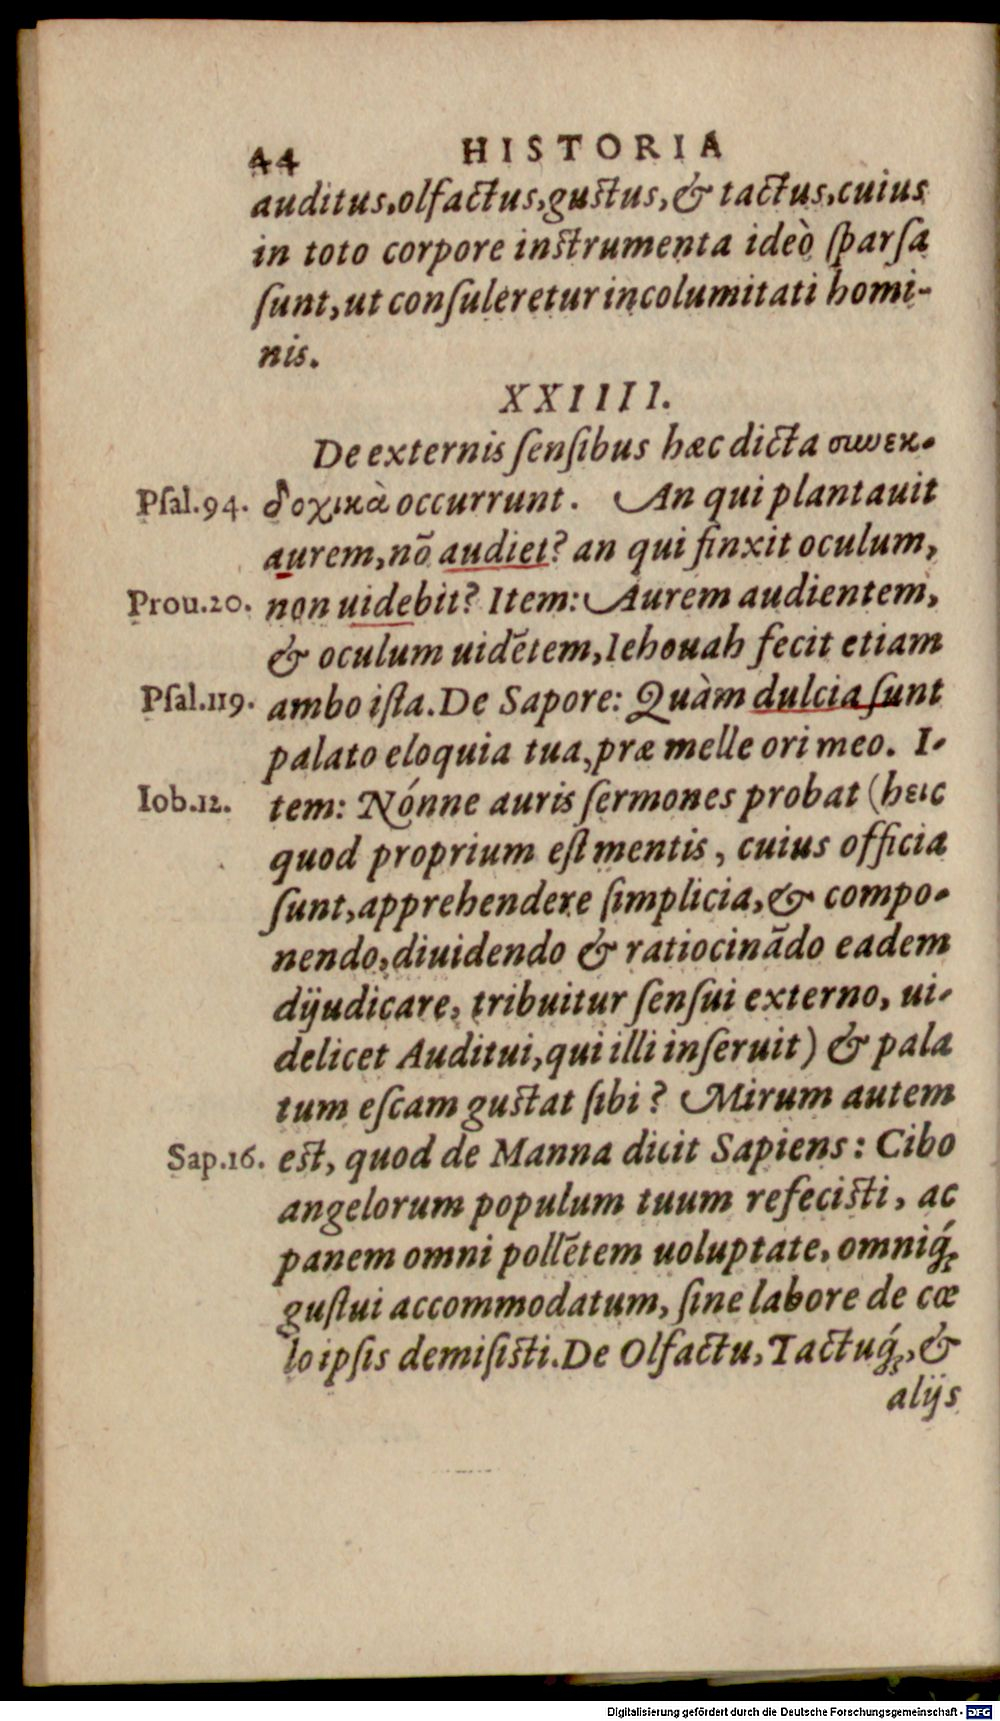 44 HISTORIA
auditus, olfactus, gustus, & tactus, cuius
in toto corpore instrumenta ideò sparſa
ſunt, ut conſuleretur incolumitati homi-
nis.
XXIIII.
De externis ſenſibus hæc dicta συνεκ-
Pſal. 94. δοχικὰ occurrunt. An qui plantauit
aurem, nõ audiet? an qui finxit oculum,
Prou. 20. non uidebit? Item: Aurem audientem,
& oculum uidẽtem, Iehouah fecit etiam
Pſal. 119. ambo iſta. De Sapore: Quàm dulcia ſunt
palato eloquia tua, præ melle ori meo. I-
Iob. 12. tem: Nónne auris ſermones probat (hεic
quod proprium eſt mentis, cuius officia
ſunt, apprehendere ſimplicia, & compo-
nendo, diuidendo & ratiocinãdo eadem
dijudicare, tribuitur ſenſui externo, ui-
delicet Auditui, qui illi inſeruit) & pala
tum eſcam gustat ſibi? Mirum autem
Sap. 16. est, quod de Manna dicit Sapiens: Cibo
angelorum populum tuum refecisti, ac
panem omni pollẽtem uoluptate, omniq́;
guſtui accommodatum, ſine labore de cœ
lo ipſis demiſisti. De Olfactu, Tactuq́;, &
alijs
Digitalisierung gefördert durch die Deutsche Forschungsgemeinschaft - DFG